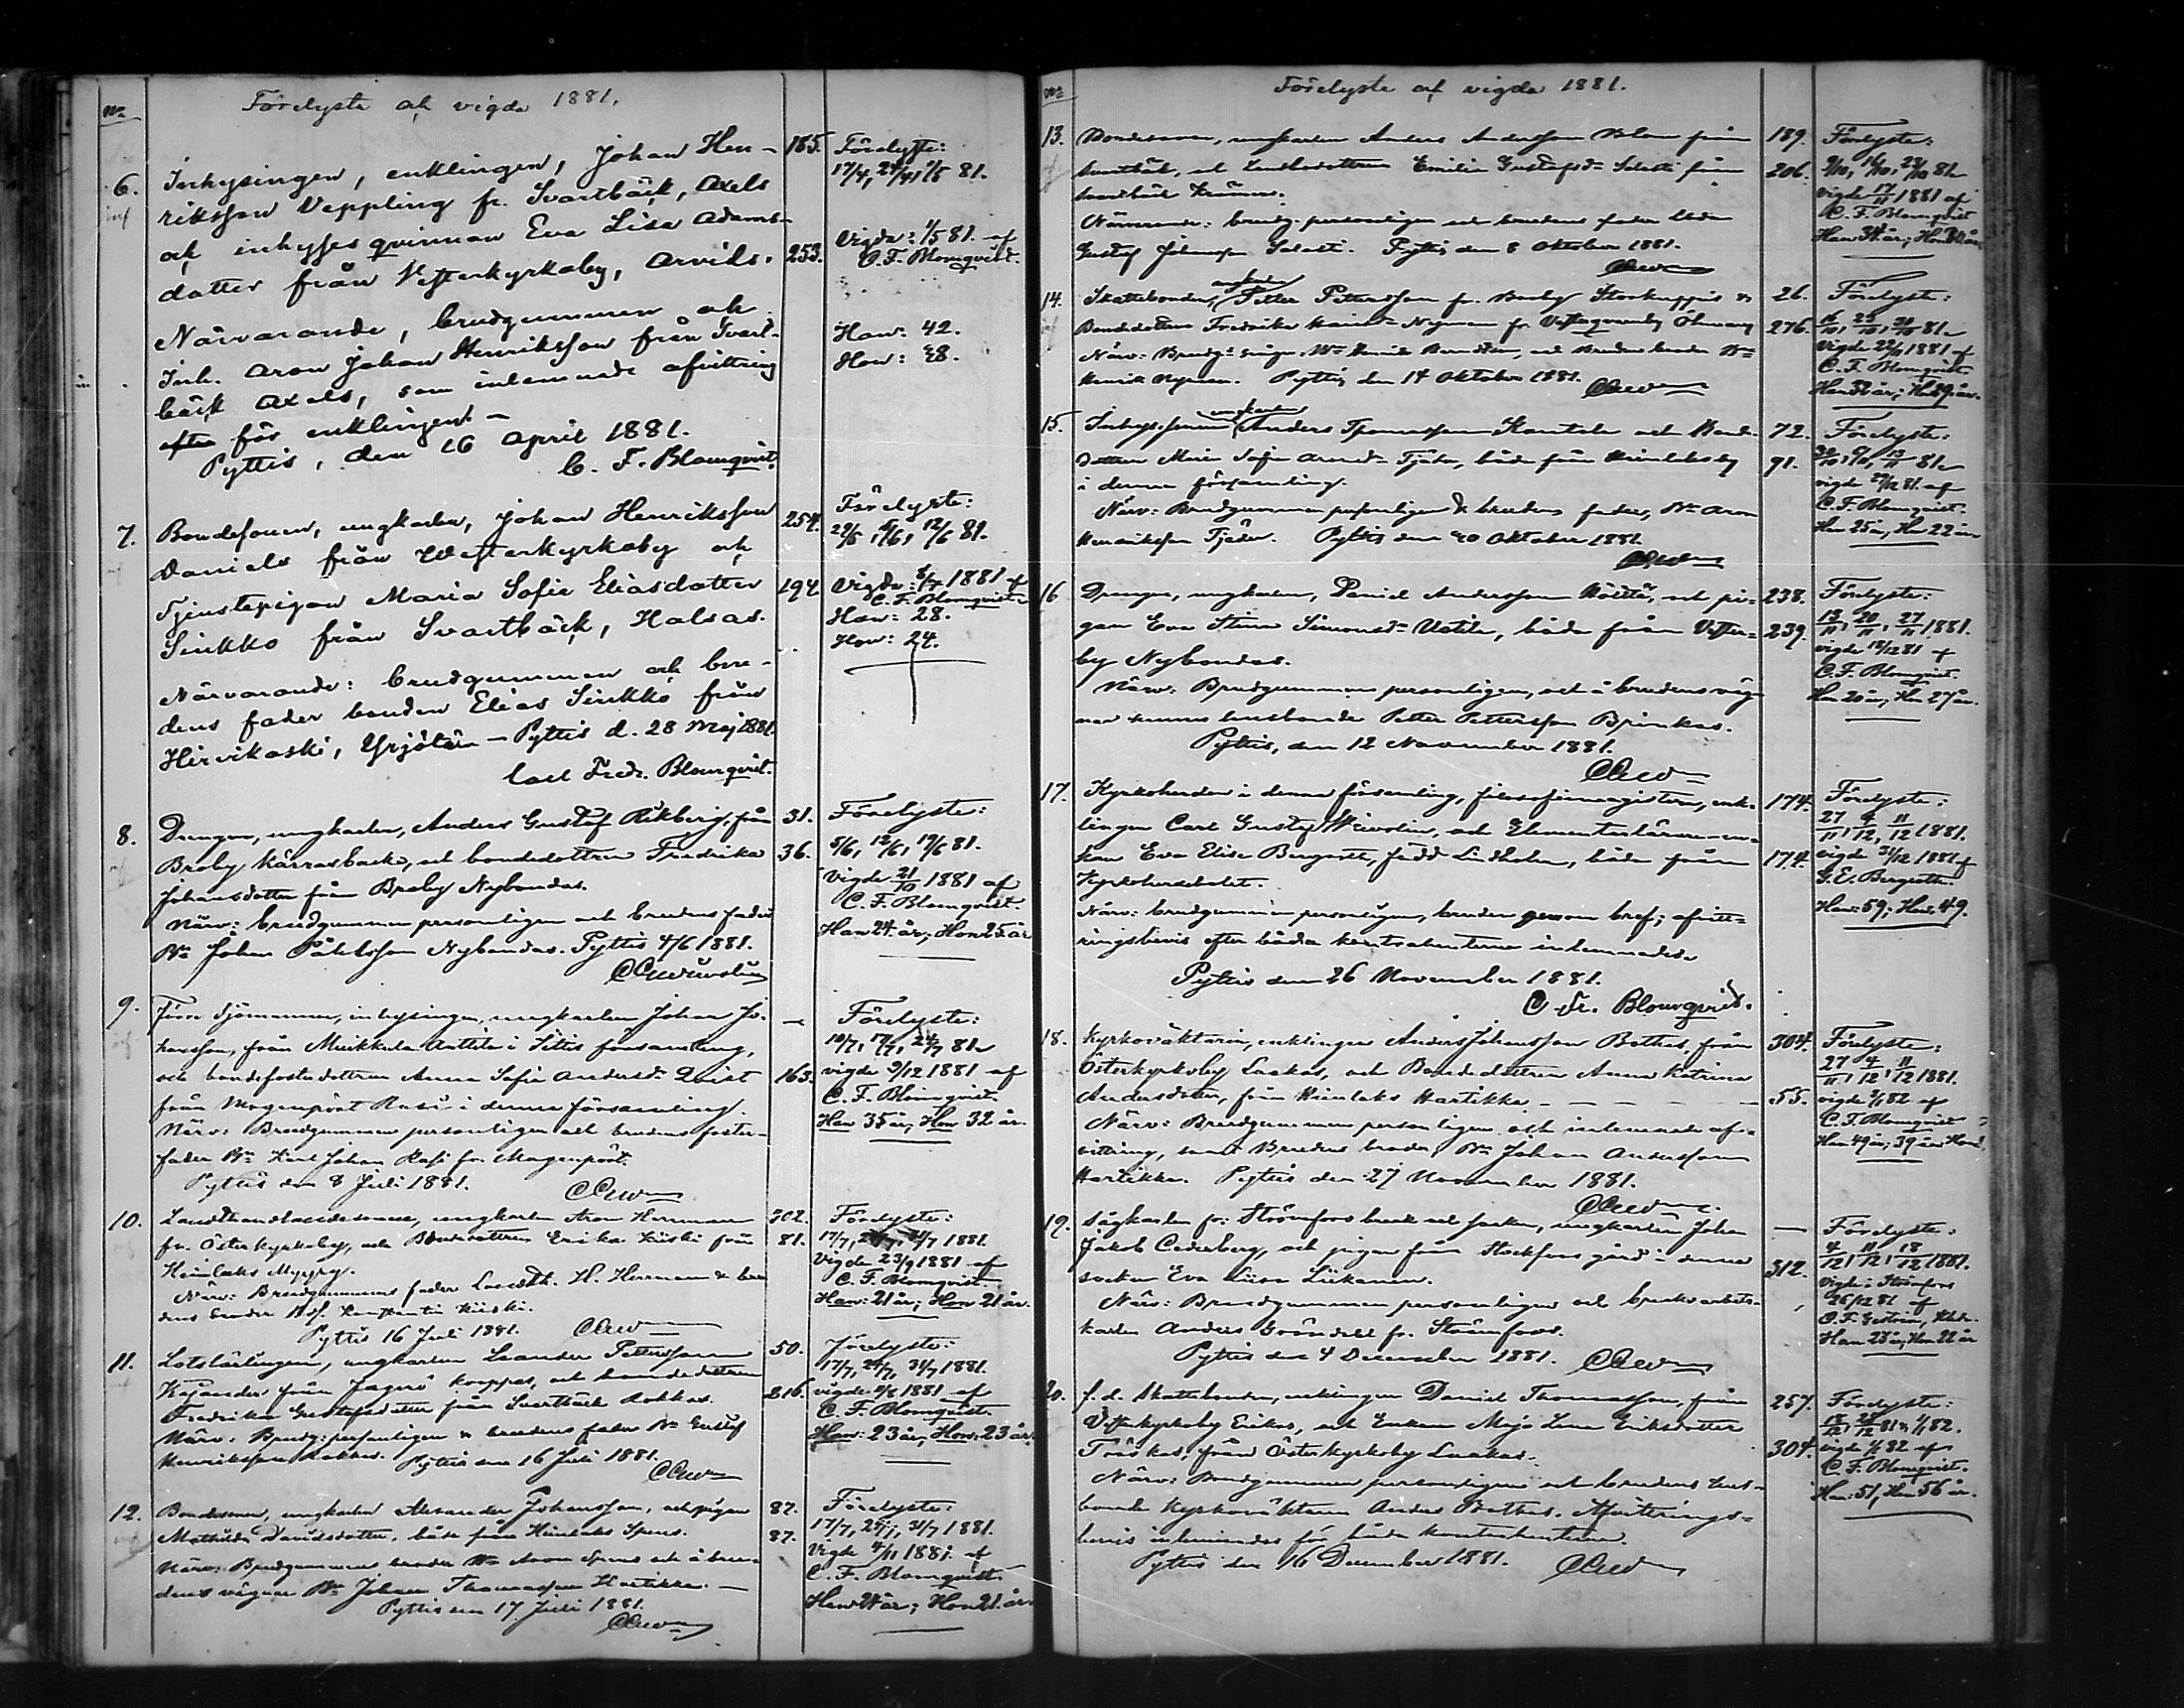 No
Förelyste och vigda 1881.
6. Inhysingen, enklingen, Johan Hen- 185. Förelyste:
riksson Veppling fr. Svartbäck, Axels 17/4, 24/4, 1/5 81.
och inhysesqvinnan Eva Lisa Adams-
dotter från Vesterkyrkoby, Arvids. 253. Vigda: 1/5 81. af
C. F. Blomqvist.
Närvarande, brudgummen och
Inh. Aron Johan Henriksson från Svart- Han: 42.
bäck Axels, som inlemnade afvittring Hon: 28.
för enklingen. –
Pyttis, den 16 April 1881.
C. F. Blomqvist.
7. Bondesonen, ungkarlen, Johan Henriksson 254. Förelyste:
Daniels från Westerkyrkoby och 29/5, 5/6, 12/6 81.
Tjenstepigan Maria Sofia Eliasdotter 194 Vigda: 1881 af
C. F. Blomqvist
Sinkko från Svartbäck, Halsas. Han: 28.
Hon: 24.
Närvarande: brudgummen och bru-
dens fader bonden Elias Sinkko från
Hirvikoski, Yrjötän – Pyttis d. 28 Maj 1881.
Carl Fredr. Blomqvist.
8. Drengen, ungkarlen, Anders Gustaf Rikberg, från 31. Förelyste:
Broby Kärrasbacka, och bondedottren Fredrika 36. 5/6, 12/6, 19/6 81.
Johansdotter från Broby Nybondas. Vigde 21/10 1881 af
C. F. Blomqvist.
Närv: brudgummen personligen och brudens fader Han 24 år; Hon 25 år
Bn Johan Påhlsson Nybondas. Pyttis 4/6 1881.
9. Förre sjömannen, inhysingen, ungkarlen Johan Jo- — Förelyste:
hansson, från Muikkula Anttila i Sittis församling, 10/7, 17/7, 24/7 81
och bondefosterdottren Anna Sofia Andersdr Qvist 163. vigde 9/12 1881 af
från Mogenpört Rasi i denna församling. C. F. Blomqvist.
Närv: Brudgummen personligen och brudens foster- Han 35 år, Hon 32 år.
fader Bn Karl Johan Rasi fr. Mogenpört.
Pyttis den 8 Juli 1881.
10. Landthandlandesonen, ungkarlen Aron Herrman 302. Förelyste:
fr. Österkyrkoby, och Bondedottren Erika Kiiski från 81. 17/7, 24/7, 31/7 1881.
Heinlaks Myyry. Vigde 23/9 1881 af
C. F. Blomqvist.
Närv: Brudgummens fader Landth. H. Herrman & bru Han: 21 år; Hon 21 år.
dens broder Konstantin Kiiski.
Pyttis 16 Juli 1881.
11. Lotslärlingen, ungkarlen Leander Pettersson 50. Förelyste:
Kajander från Jägerö Koppas, och bondedottren 17/7, 24/7, 31/7 1881.
Fredrika Gustafsdotter från Svartbäck Rokkas. 216. vigde 1881 af
C. F. Blomqvist.
Närv: Brudg: personligen & brudens fader Bn Gustaf Han: 23 år, Hon: 23 år.
Henriksson Rokkas. Pyttis den 16 Juli 1881.
12. Bondesonen, ungkarlen Alexander Johansson, och pigan 87. Förelyste:
Mathilda Davidsdotter, båda från Heinlaks Spens. 87. 17/7, 24/7, 31/7 1881.
Närv: Brudgummens broder Bn Aron Spens och å bru- Vigde 4/11 1881. af
dens vägnar Bn Johan Thomasson Hartikka. – C. F. Blomqvist.
Pyttis den 17 Juli 1881. Han 24 år; Hon 21. år.
No
Förelyste och vigda 1881.
13. Bondesonen, ungkarlen Anders Andersson Blom från 189. Förelyste:
Svartbäk, och Landbodottren Emilia Gustafsdr Salosti från 206. 9/10, 16/10, 23/10 81
Svartbäck vigde 17/11 1881 af
C. F. Blomqvist
Närvarande: brudg. personligen och brudens fader Han 34 år; Hon
Gustaf Johansson Salosti. Pyttis den 8 Oktober 1881.
14. Skattebonden, Petter Pettersson fr. Broby Storkuppis & 26. Förelyste:
Bondedottren Fredrika Nyman fr Vestaqvarnby Öhman 276. 16/10, 23/10, 30/10 81
Vigde 1881 af
C. F. Blomqvist.
Närv: Brudg: och Brudens broder Bn
Henrik Nyman. Pyttis, den 14 Oktober 1881.
15. Inhyssonen, ungkarlen Anders Thomasson Kantola och Bonde- 72. Förelyste:
dottren Maria Sofia Aronsdr Tjäder, båda från Heinlaksby 91. 30/10, 6/11, 13/11 81
i denna församling. vigde 81 af
C. F. Blomqvist.
Närv: Brudgummen personligen & brudens fader, Bn Aron Han 25 år, Hon 22 år
Henriksson Tjäder. Pyttis den 20 Oktober 1881
16 Drengen, ungkarlen, Daniel Andersson och pi- 238. Förelyste:
gan Eva Stina Simonsdr Uotila, båda från Vester- 239. 13/11, 20/11, 27/11 1881.
by Nybondas. vigde 81 af
C. F. Blomqvist.
Närv: Brudgummen personligen, och å brudens väg- Han 20 år, Hon 27 år.
nar hennes husbonde Petter Pettersson Brinkas.
Pyttis, den 12 November 1881.
17. Kyrkoherden i denna församling, filosofiemagistern, enk- 174. Förelyste:
lingen Carl Gustaf Weivolin, och Elementarlärare-en- 27/11, 4/12, 11/12 1881.
kan Eva Elise Bergroth, född Lindholm, båda från 174. vigde 31/12 1881 af
Kyrkoherdebolet. G. E. Bergroth.
Närv: brudgummen personligen, bruden genom bref; afvitt- Han: 59; Hon: 49.
ringsbevis efter båda kontrahenterne inlemnades
Pyttis den 26 November 1881.
C. Fr. Blomqvist.
18. Kyrkoväktaren, enklingen Anders Johansson Bothas, från 304. Förelyste:
Österkyrkoby Laakas, och Bondedottren Anna Katrina 27/11, 4/12, 11/12 1881.
Andersdotter, från Heinlaks Hartikka – – – – 55. vigde 82 af
C. F. Blomqvist
Närv: Brudgummen personligen och inlemnade af- Han 49 år; 39 år Hon.
vittring, samt Brudens broder, Bn Johan Andersson
Hartikka. Pyttis den 27 November 1881.
19. Sågkarlen fr. Strömfors bruk och socken, ungkarlen Johan — Förelyste:
Jakob Cederberg, och pigan från Stockfors gård i denna 4/12, 11/12, 18/12 1881.
socken Eva Liisa Liikanen. 312. Vigde i Strömfors
26/12 81 af
Närv: Brudgummen personligen och bruksarbets-
karlen Anders Gröndahl fr. Strömfors. Han 23 år, Hon 22 år
Pyttis den 4 December 1881.
20. f. d. Skattebonden, enklingen Daniel Thomasson, från 257. Förelyste:
Vesterkyrkoby Erikas, och Enkan Maja Lena Eriksdotter 18/12, 81 & 1/1 82.
Träskas, från Österkyrkoby Laakas. 304. vigde 82 af
C. F. Blomqvist.
Närv: Brudgummen personligen och brudens hus- Han: 51, Hon 56 år.
bonde Kyrkoväktaren Anders Bothas. Afvittrings-
bevis inlemnades för båda kontrahenterne.
Pyttis den 16 December 1881.